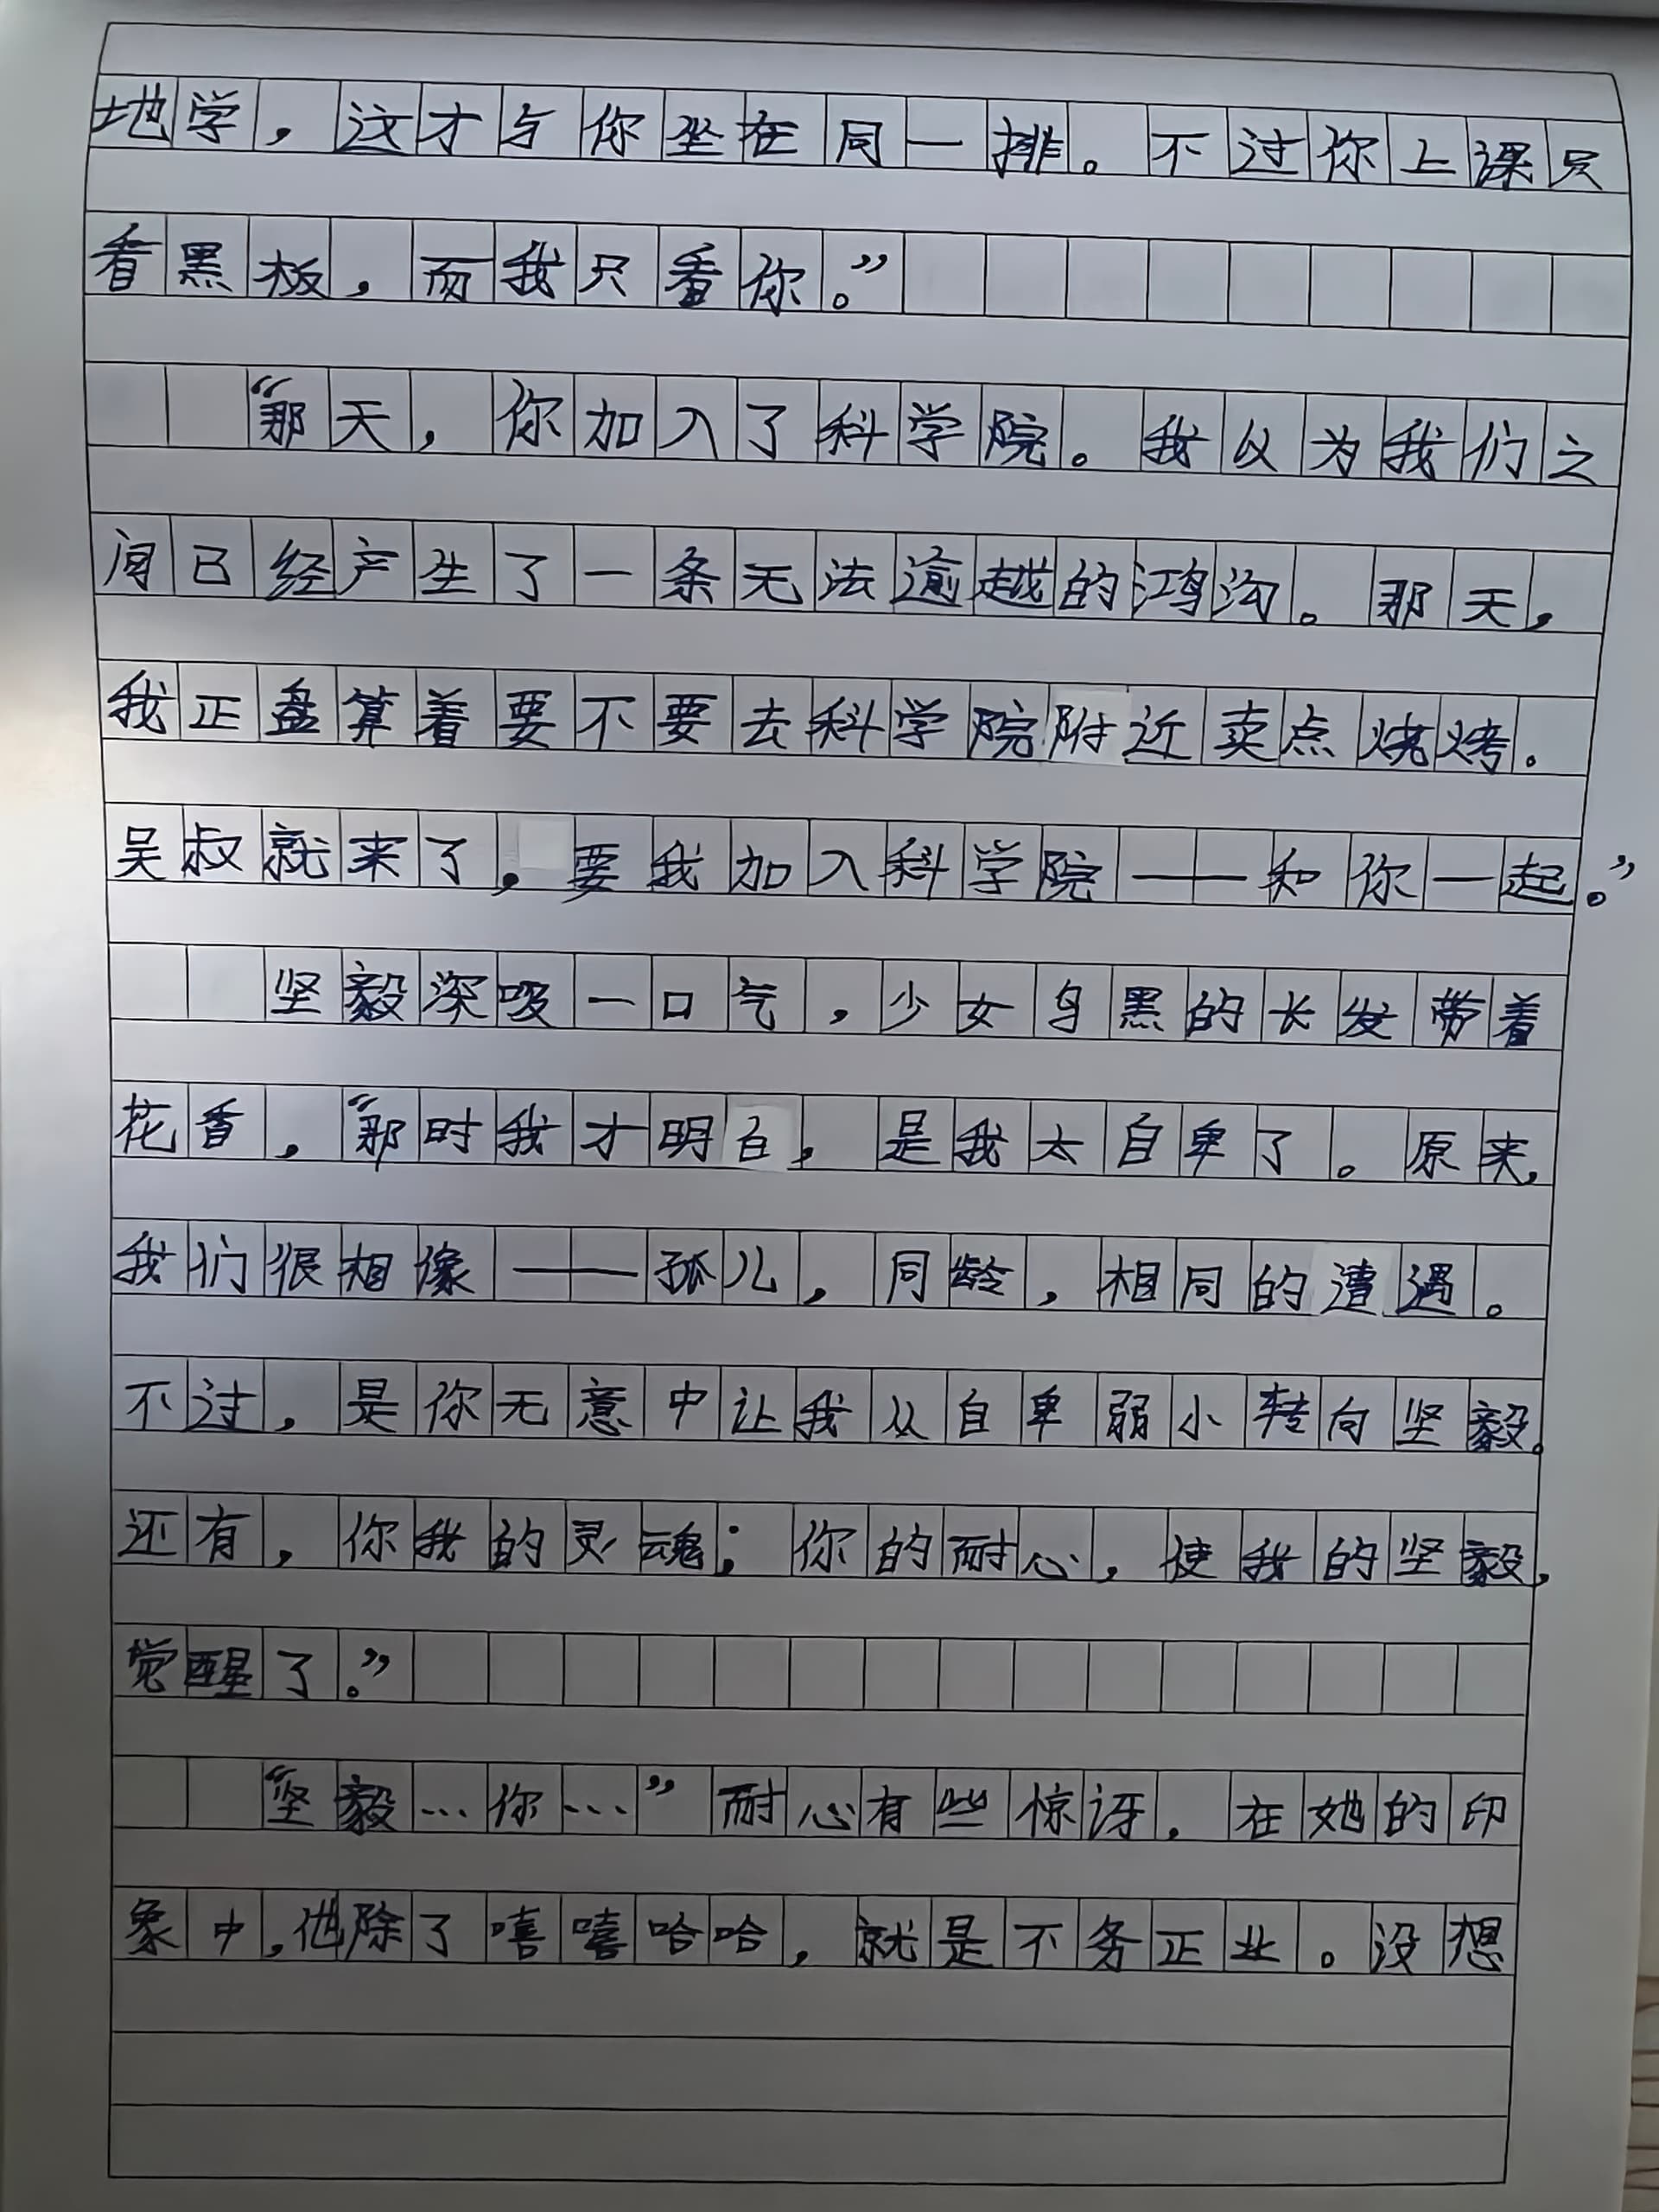 地学，这才与你坐在同一排。不过你上课只
看黑板，而我只看你。”
“那天，你加入了科学院。我以为我们之
间已经产生了一条无法逾越的鸿沟。那天，
我正盘算着要不要去科学院附近卖点烧烤。
吴叔就来了，要我加入科学院——和你一起。”
坚毅深吸一口气，少女乌黑的长发带着
花香，“那时我才明白，是我太自卑了。原来，
我们很相像——孤儿，同龄，相同的遭遇。
不过，是你无意中让我从自卑弱小转向坚毅。
还有，你我的灵魂；你的耐心，使我的坚毅，
觉醒了。”
“坚毅…你…”耐心有些惊讶，在她的印
象中，他除了嘻嘻哈哈，就是不务正业。没想